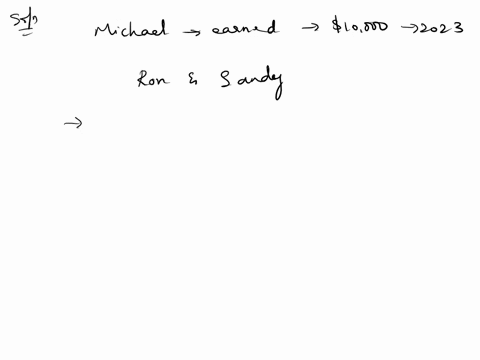 Soln Michael → earned → $10,000 → 2023
Ron & Sandy
→